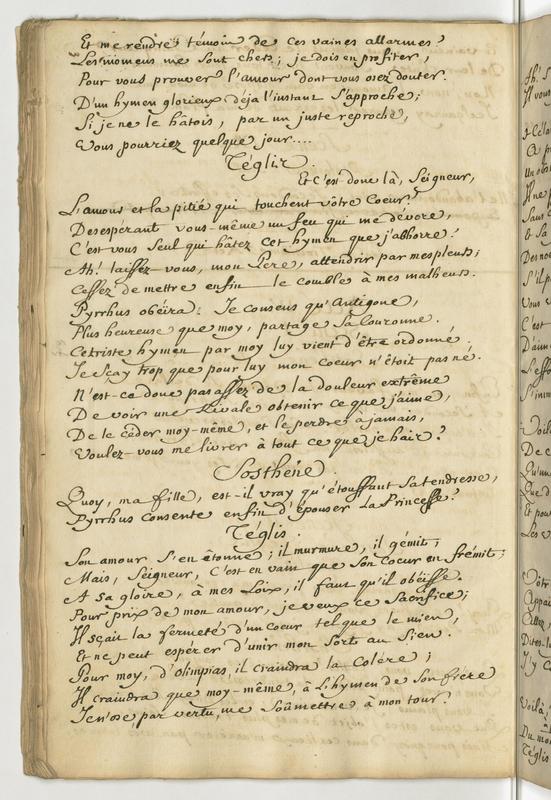 Et me rendre témoin de ces vaines allarmes?
Les momens me sont chers; je dois en profiter,
Pour vous prouver l'amour dont vous osez douter.
D'un hymen glorieux déja l'instant s'approche;
Si je ne le hâtois, par un juste reproche,
Vous pourriez quelque jour....
Téglis.
Et c'est donc là, Seigneur,
L'amour et la pitié qui touchent vôtre Coeur?
Desesperant vous-même un feu qui me dévore,
C'est vous seul qui hâtez cet hymen que j'abhorre?
Ah! laissez vous, mon Pere, attendrir par mes pleurs;
Cessez de mettre enfin le comble à mes malheurs.
Pyrrhus obéïra: Je consens qu'Antigone,
Plus heureuse que moy, partage sa Couronne.
Ce triste hymen par moy luy vient d'être ordonné;
Je sçay trop que pour luy mon coeur n'étoit pas né.
N'est-ce donc pas assez de la douleur extrême
De voir une Rivale obtenir ce que j'aime,
De le céder moy-même, et le perdre à jamais,
Voulez-vous me livrer à tout ce que je hair?
Sosthéne.
Quoy, ma fille, est-il vray qu'étouffant sa tendresse,
Pyrrhus consente enfin d'épouser la Princesse?
Téglis.
Son amour s'en étonne; il murmure, il gémit;
Mais, Seigneur, C'est en vain que son Coeur en frémit;
A sa gloire, à mes Loix, il faut qu'il obéisse.
Pour prix de mon amour, je veux ce Sacrifice;
Il sçait la fermeté d'un coeur tel que le mien,
Et ne peut espérer d'unir mon Sort au Sien.
Pour moy, d'Olimpias il craindra la Colére;
Il craindra que moy-même, à l'hymen de son frére
Je n'ose, par vertu, me soûmettre à mon tour.